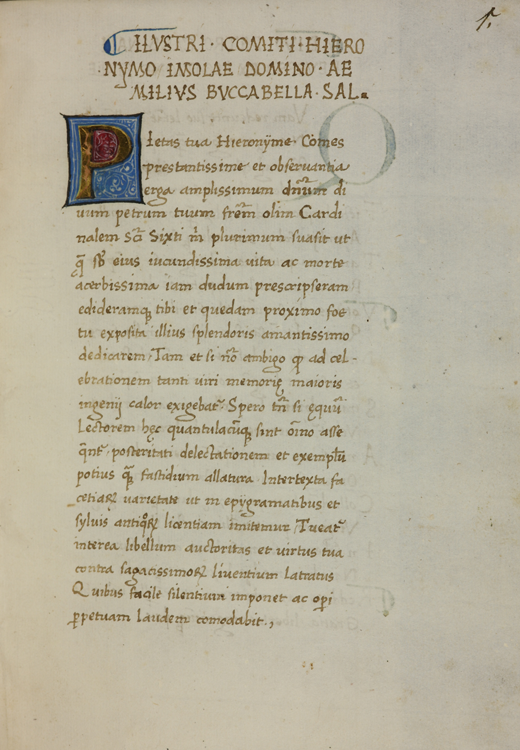 1.
ILVSTRI · COMITI · HIERO
·NYMO INSOLAE DOMINO · AE
MILIVS BVCCABELLA · SAL.
PIetas tua Hieronÿme Comes
prestantissime et observantia
erga amplissimum dñum di
uum petrum tuum frẽm olim Cardi
nalem Scĩ Sixti m̃ plurimum suasit ut
q̃ sʙ̃ eius iucundissima uita ac morte
acerbissima iam dudum prescripseram
edideramqꝫ tibi et quedam proximo foe
tu exposita illius splendoris amantissimo
dedicarem, Tam et si nõ ambigo qp ad cel-
ebrationem tanti uiri memorię maioris
ingenij calor exigebat᷑. Spero tñ si ęquũ
Lectorem hęc quantulacũqꝫ sint oĩno asse
qñt᷑ posteritati delectationem et exemplũ
potius q̃ fastidium allatura Intertexta fa
cetiaꝝ varietate ut in epÿgramatibus et
sylvis antiqoꝝ licentiam imitemur, Tueat᷑
interea libellum auctoritas et virtus tua
contra sagacissimoꝝ liventium latratus
Quibus facile silentium imponet ac opĩ
ꝑpetuam laudem comodabit.,